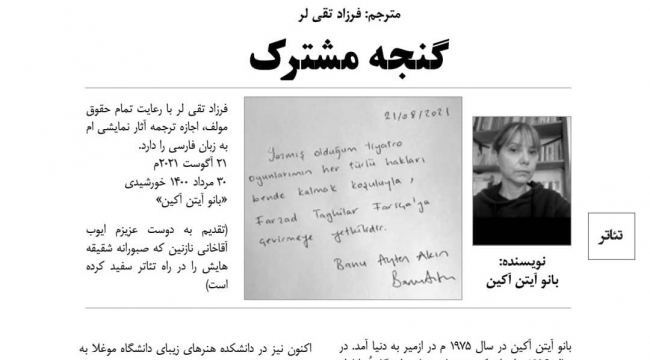 مترجم: فرزاد تقی لر
گنجه مشترک
فرزاد تقی لر با رعایت تمام حقوق
مولف، اجازه ترجمه آثار نمایشی ام
به زبان فارسی را دارد.
۲۱ آگوست ۲۰۲۱م
۳۰ مرداد ۱۴۰۰ خورشیدی
«بانو آیتن آکین»
(تقدیم به دوست عزیزم ایوب
آقاخانی نازنین که صبورانه شقیقه
هایش را در راه تئاتر سفید کرده
است)
21/08/2021
Yazmış olduğum tiyatro
oyunlarımın her türlü hakları
bende kalmak koşuluyla,
Farzad Taghilar Farsça'ya
çevirmeye yetkilidir.
Banu Ayten Akın
نویسنده:
بانو آیتن آکین
تئاتر
بانو آیتن آکین در سال ۱۹۷۵ م در ازمیر به دنیا آمد. در
اکنون نیز در دانشکده هنرهای زیبای دانشگاه موغلا به